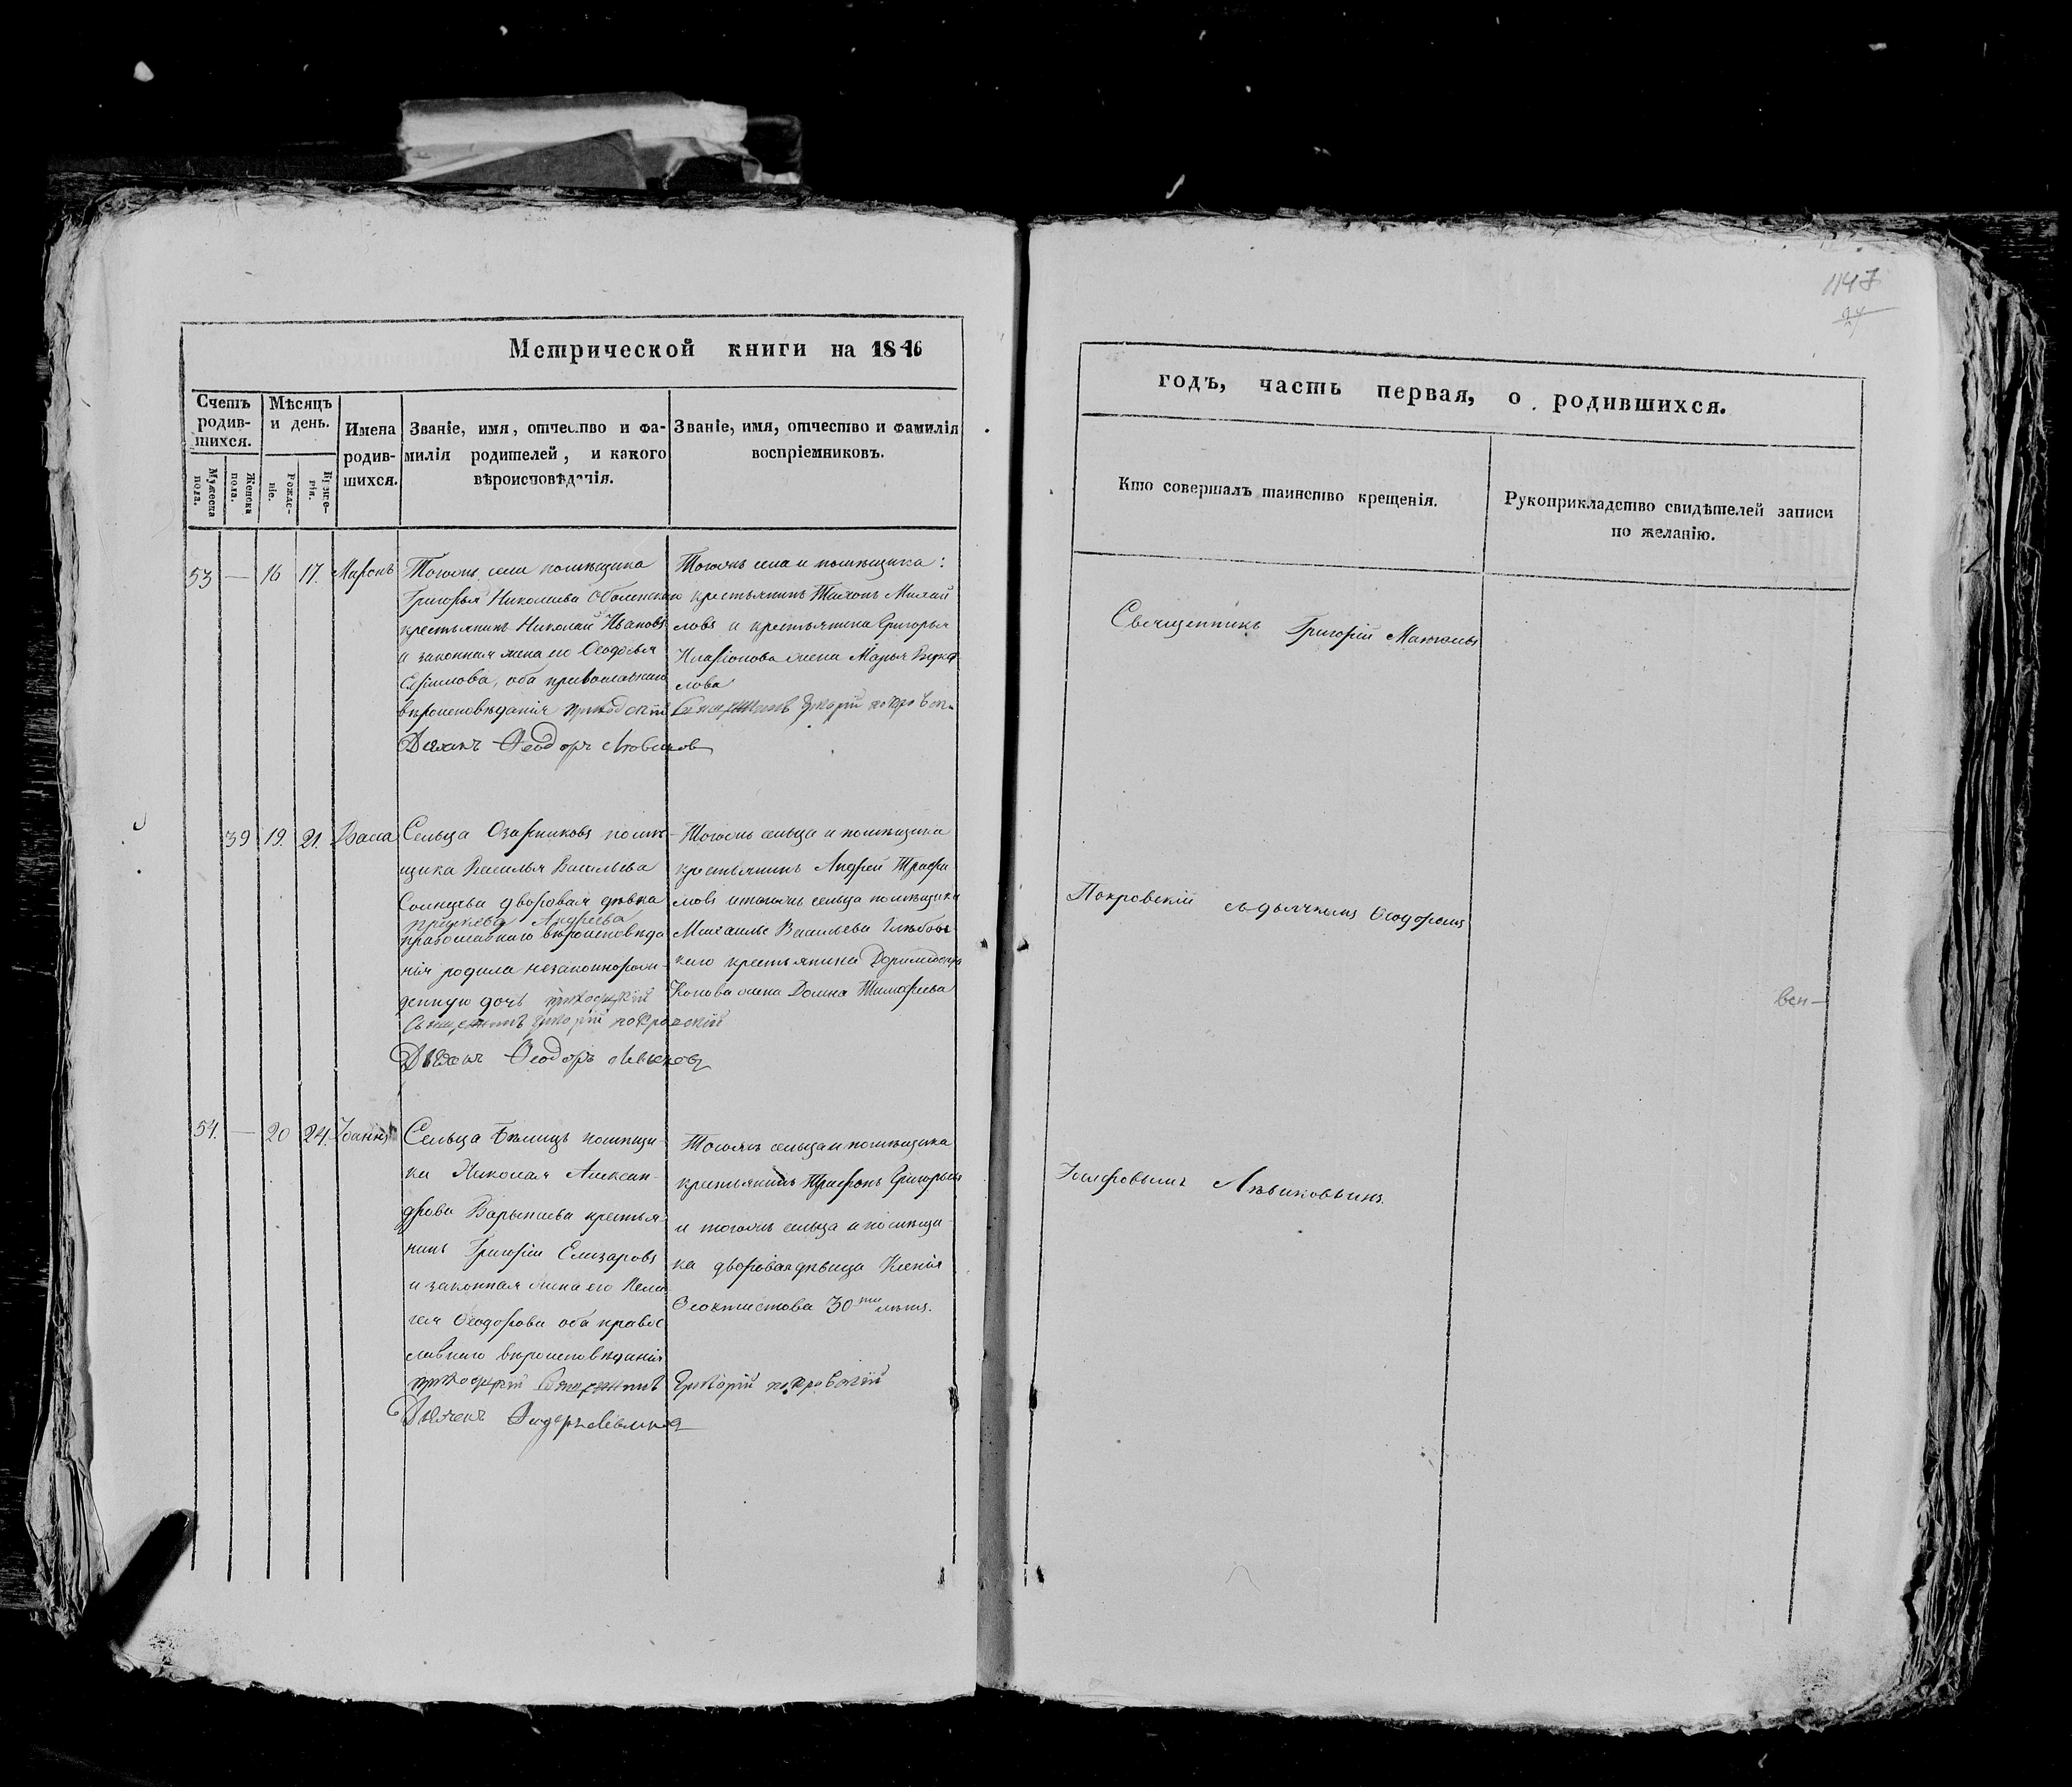 1147
27
Метрической книги на 1846
Счетъ родившихся.
Мужеска пола.
Женска пола.
Мѣсяцъ и день.
Рожденіе.
Крещенія.
Имена родившихся.
Званіе, имя, отчество и фамилія родителей, и какого вѣроисповѣданія.
Званіе, имя, отчество и фамилія воспріемниковъ.
53 — 16 17. Миронъ
Тогожъ села помѣщика
Григорья Николаева Оболенскаго
крестьянинъ Николай Ивановъ
и законная жена его Ѳеодосья
Ефимова, оба православнаго
вѣроисповѣданія приходскій
Тогожъ села и помѣщика:
крестьянинъ
ловъ и крестьянина Григорья
жена Марья
лова
Священникъ Григорій Покровск.
Дьячекъ Ѳеодоръ Левиков
39 19. 21. Васса
Сельца Озарниковъ помѣ-
щика Василья Васильева
Солнцева дворовая дѣвка
Андреева
православнаго вѣроисповѣда
нія родила незаконнорож-
денную дочь приходскій
Священникъ Григорій Покровскій
Дьячекъ Ѳеодоръ Левиков
Тогожъ сельца и помѣщика
крестьянинъ Андрей Трофи
мовъ и тогожъ сельца помѣщика
Михаила Васильева Глѣбовс
каго крестьянина
Конова жена Домна Тимофеева
54. — 20 24. Іоаннъ
Сельца Бѣлицъ помѣщи-
ка Николая Алексан-
дрова Варыпаева крестья-
нинъ Григорій Елизаровъ
и законная жена его Пела
гея Ѳеодорова оба правос
лавнаго вѣроисповѣданія
приходскій Священникъ Григорій Покровскій
Дьячекъ Ѳеодоръ Левиков
Тогожъ сельца и помѣщика
крестьянинъ Трофимъ Григорьевъ
и тогожъ сельца и помѣщи-
ка дворовая дѣвица Ксенія
Ѳеоктистова 30ти лѣтъ.
годъ, часть первая, о родившихся.
Кто совершалъ таинство крещенія.
Рукоприкладство свидѣтелей записи по желанію.
Священникъ Григорій
Покровскій съ дьячкомъ Ѳеодоромъ
Іосифовымъ Левиковымъ.